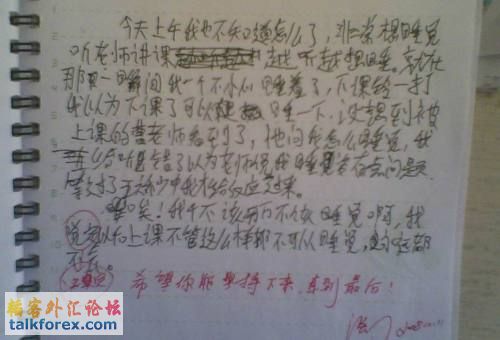 今天上午我也不知道怎么了，非常想睡觉
听老师讲课越听越想睡。就在
那一瞬间我一个不小心睡着了，下课铃一打
我以为下课了可以睡一下，没想到被
上课的曹老师看到了，他问我怎么睡觉，我
听错了以为老师说我睡觉有点问题
我才给反应过来。
哎！我千不该万不该睡觉啊，我
以后上课不管怎么样都不可以睡觉，
希望你能坚持下来，直到最后！
韬客外汇论坛
talkforex.com